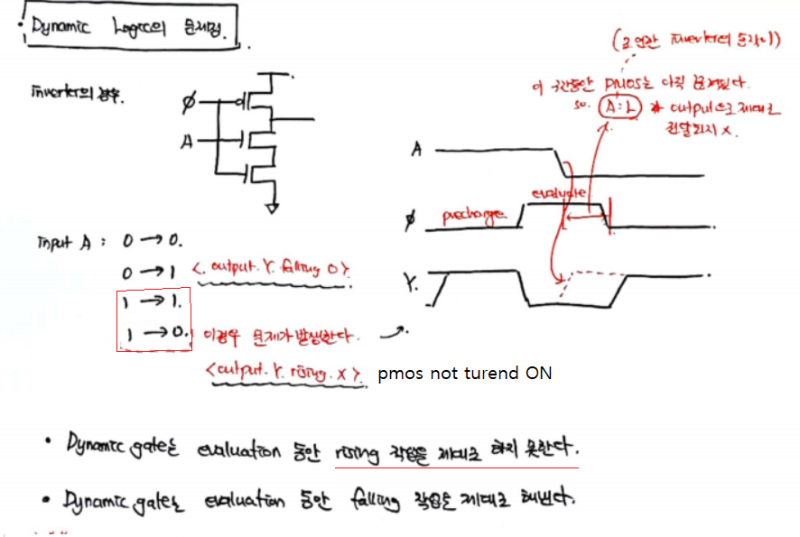 • Dynamic Logic의 문제점.
Inverter의 경우.
ø
A
Input A : 0 → 0.
0 → 1 <. output. Y. falling O>.
1 → 1.
1 → 0. 이경우 문제가 발생한다.
<output. Y. rising. X>. pmos not turend ON
이 구간동안 PMOS는 아직 꺼져있다.
so. A:L output으로 제대로
전달되지 X.
A
evaluate
ø precharge
Y.
• Dynamic gate는 evaluation 동안 rising 작업을 제대로 하지 못한다.
• Dynamic gate는 evaluation 동안 falling 작업을 제대로 해낸다.